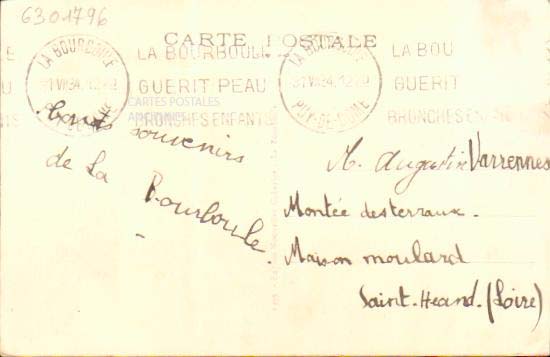 6301796
CARTE POSTALE
LA BOURBOULE
31 VII 34. 12H9
PUY-DE-DOME
LA BOURBOULE
GUERIT PEAU
BRONCHES ENFANTS
LA BOURBOULE
31 VII 34. 12H9
PUY-DE-DOME
LA BOU
GUERIT
BRONCHES EN
CARTES POSTALES
ANCIENNES
souvenirs
de La Bourboule.
M. Augustin Varrennes
Montée des terraux.
Maison moulard
Saint-Heand. (Loire)